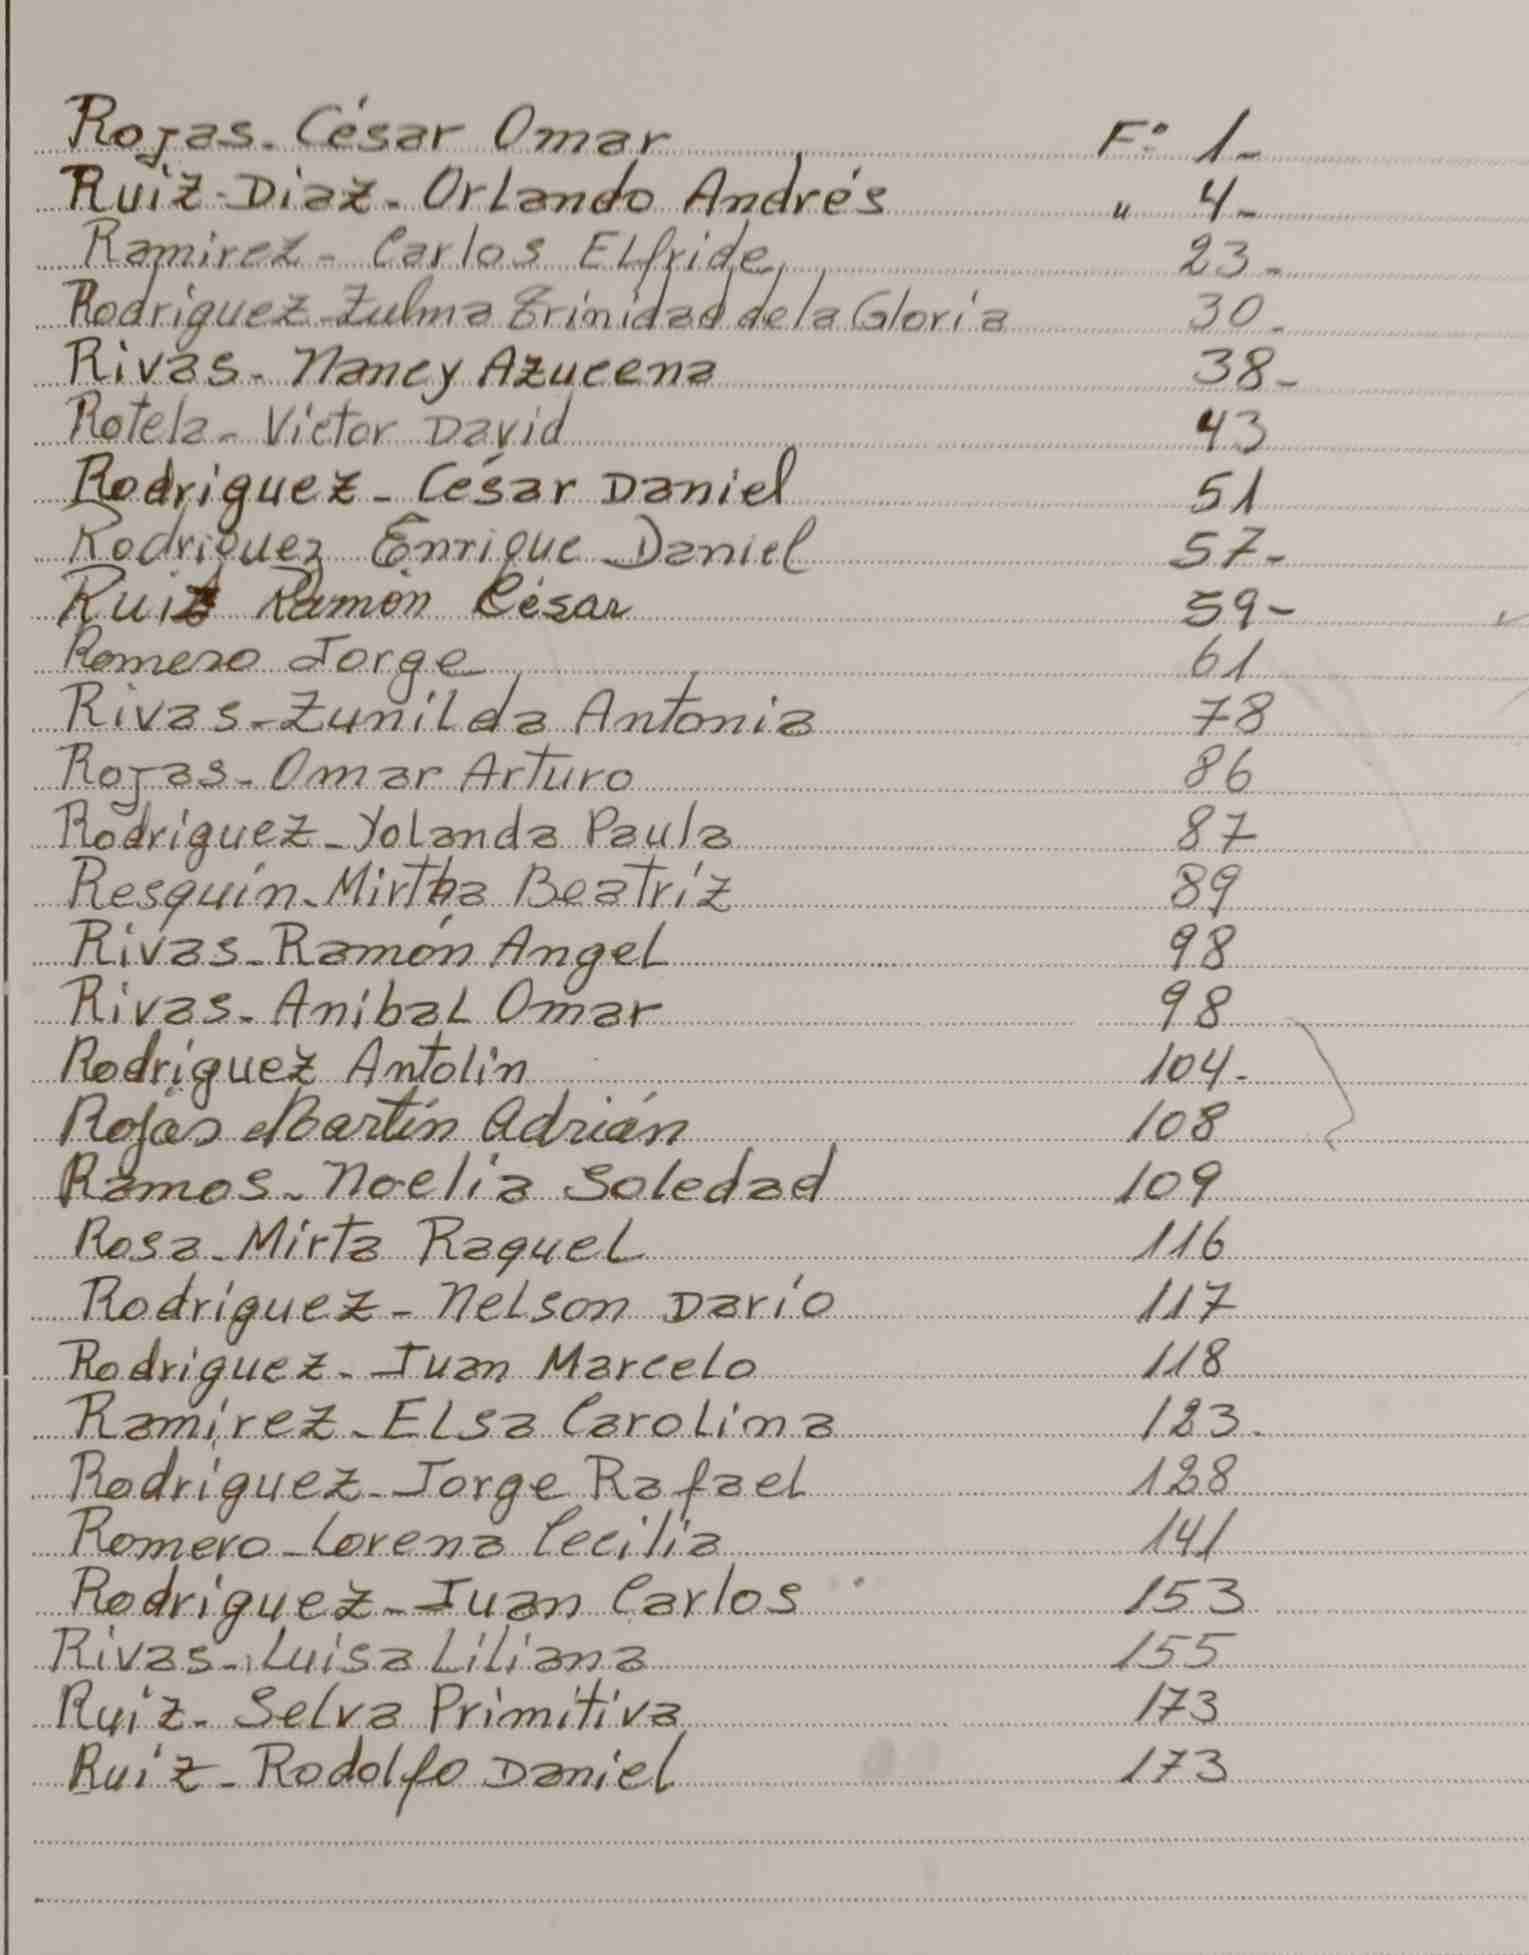 Rojas - César Omar F° 1-
Ruiz-Diaz - Orlando Andrés " 4-
Ramirez - Carlos Elfride 23-
Rodriguez - Zulma Trinidad de la Gloria 30-
Rivas - Nancy Azucena 38-
Rotela - Victor David 43
Rodriguez - César Daniel 51
Rodriguez Enrique Daniel 57-
Ruiz Ramón César 59-
Romero Jorge 61
Rivas - Zunilda Antonia 78
Rojas - Omar Arturo 86
Rodriguez - Yolanda Paula 87
Resquín - Mirtha Beatríz 89
Rivas - Ramón Angel 98
Rivas - Anibal Omar 98
Rodriguez Antolin 104-
Rojas Martín Adrián 108
Ramos - Noelia Soledad 109
Rosa - Mirta Raquel 116
Rodriguez - Nelson Darío 117
Rodriguez - Juan Marcelo 118
Ramírez - Elsa Carolina 123.
Rodriguez - Jorge Rafael 128
Romero - Lorena Cecilia 141
Rodriguez - Juan Carlos 153
Rivas - Luisa Liliana 155
Ruiz - Selva Primitiva 173
Ruiz - Rodolfo Daniel 173